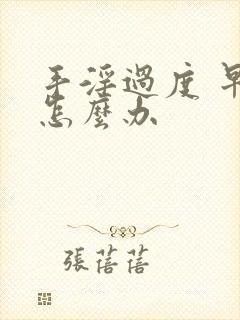 手淫過度 早
怎麼办
張蓓蓓